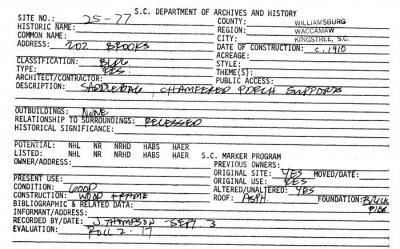 S.C. DEPARTMENT OF ARCHIVES AND HISTORY
SITE NO.: 25-77 COUNTY: WILLIAMSBURG
HISTORIC NAME: REGION: WACCAMAW
COMMON NAME: CITY: KINGSTREE, S.C.
ADDRESS: 202 BROOKS DATE OF CONSTRUCTION: c. 1910
ACREAGE:
CLASSIFICATION: BLDG STYLE:
TYPE: RES. THEME(S):
ARCHITECT/CONTRACTOR: PUBLIC ACCESS:
DESCRIPTION: SADDLEBAG, CHAMFERED PORCH SUPPORTS
OUTBUILDINGS: NONE
RELATIONSHIP TO SURROUNDINGS: RECESSED
HISTORICAL SIGNIFICANCE:
POTENTIAL: NHL NR NRHD HABS HAER
LISTED: NHL NR NRHD HABS HAER S.C. MARKER PROGRAM
OWNER/ADDRESS: PREVIOUS OWNERS:
ORIGINAL SITE: YES MOVED/DATE:
PRESENT USE: ORIGINAL USE: RES
CONDITION: GOOD ALTERED/UNALTERED: YES
CONSTRUCTION: WOOD FRAME ROOF: ASPH. FOUNDATION: BRICK
BIBLIOGRAPHIC & RELATED DATA: PIER
INFORMANT/ADDRESS:
RECORDED BY/DATE: J. THOMPSON SEPT 3
EVALUATION: ROLL 2-17